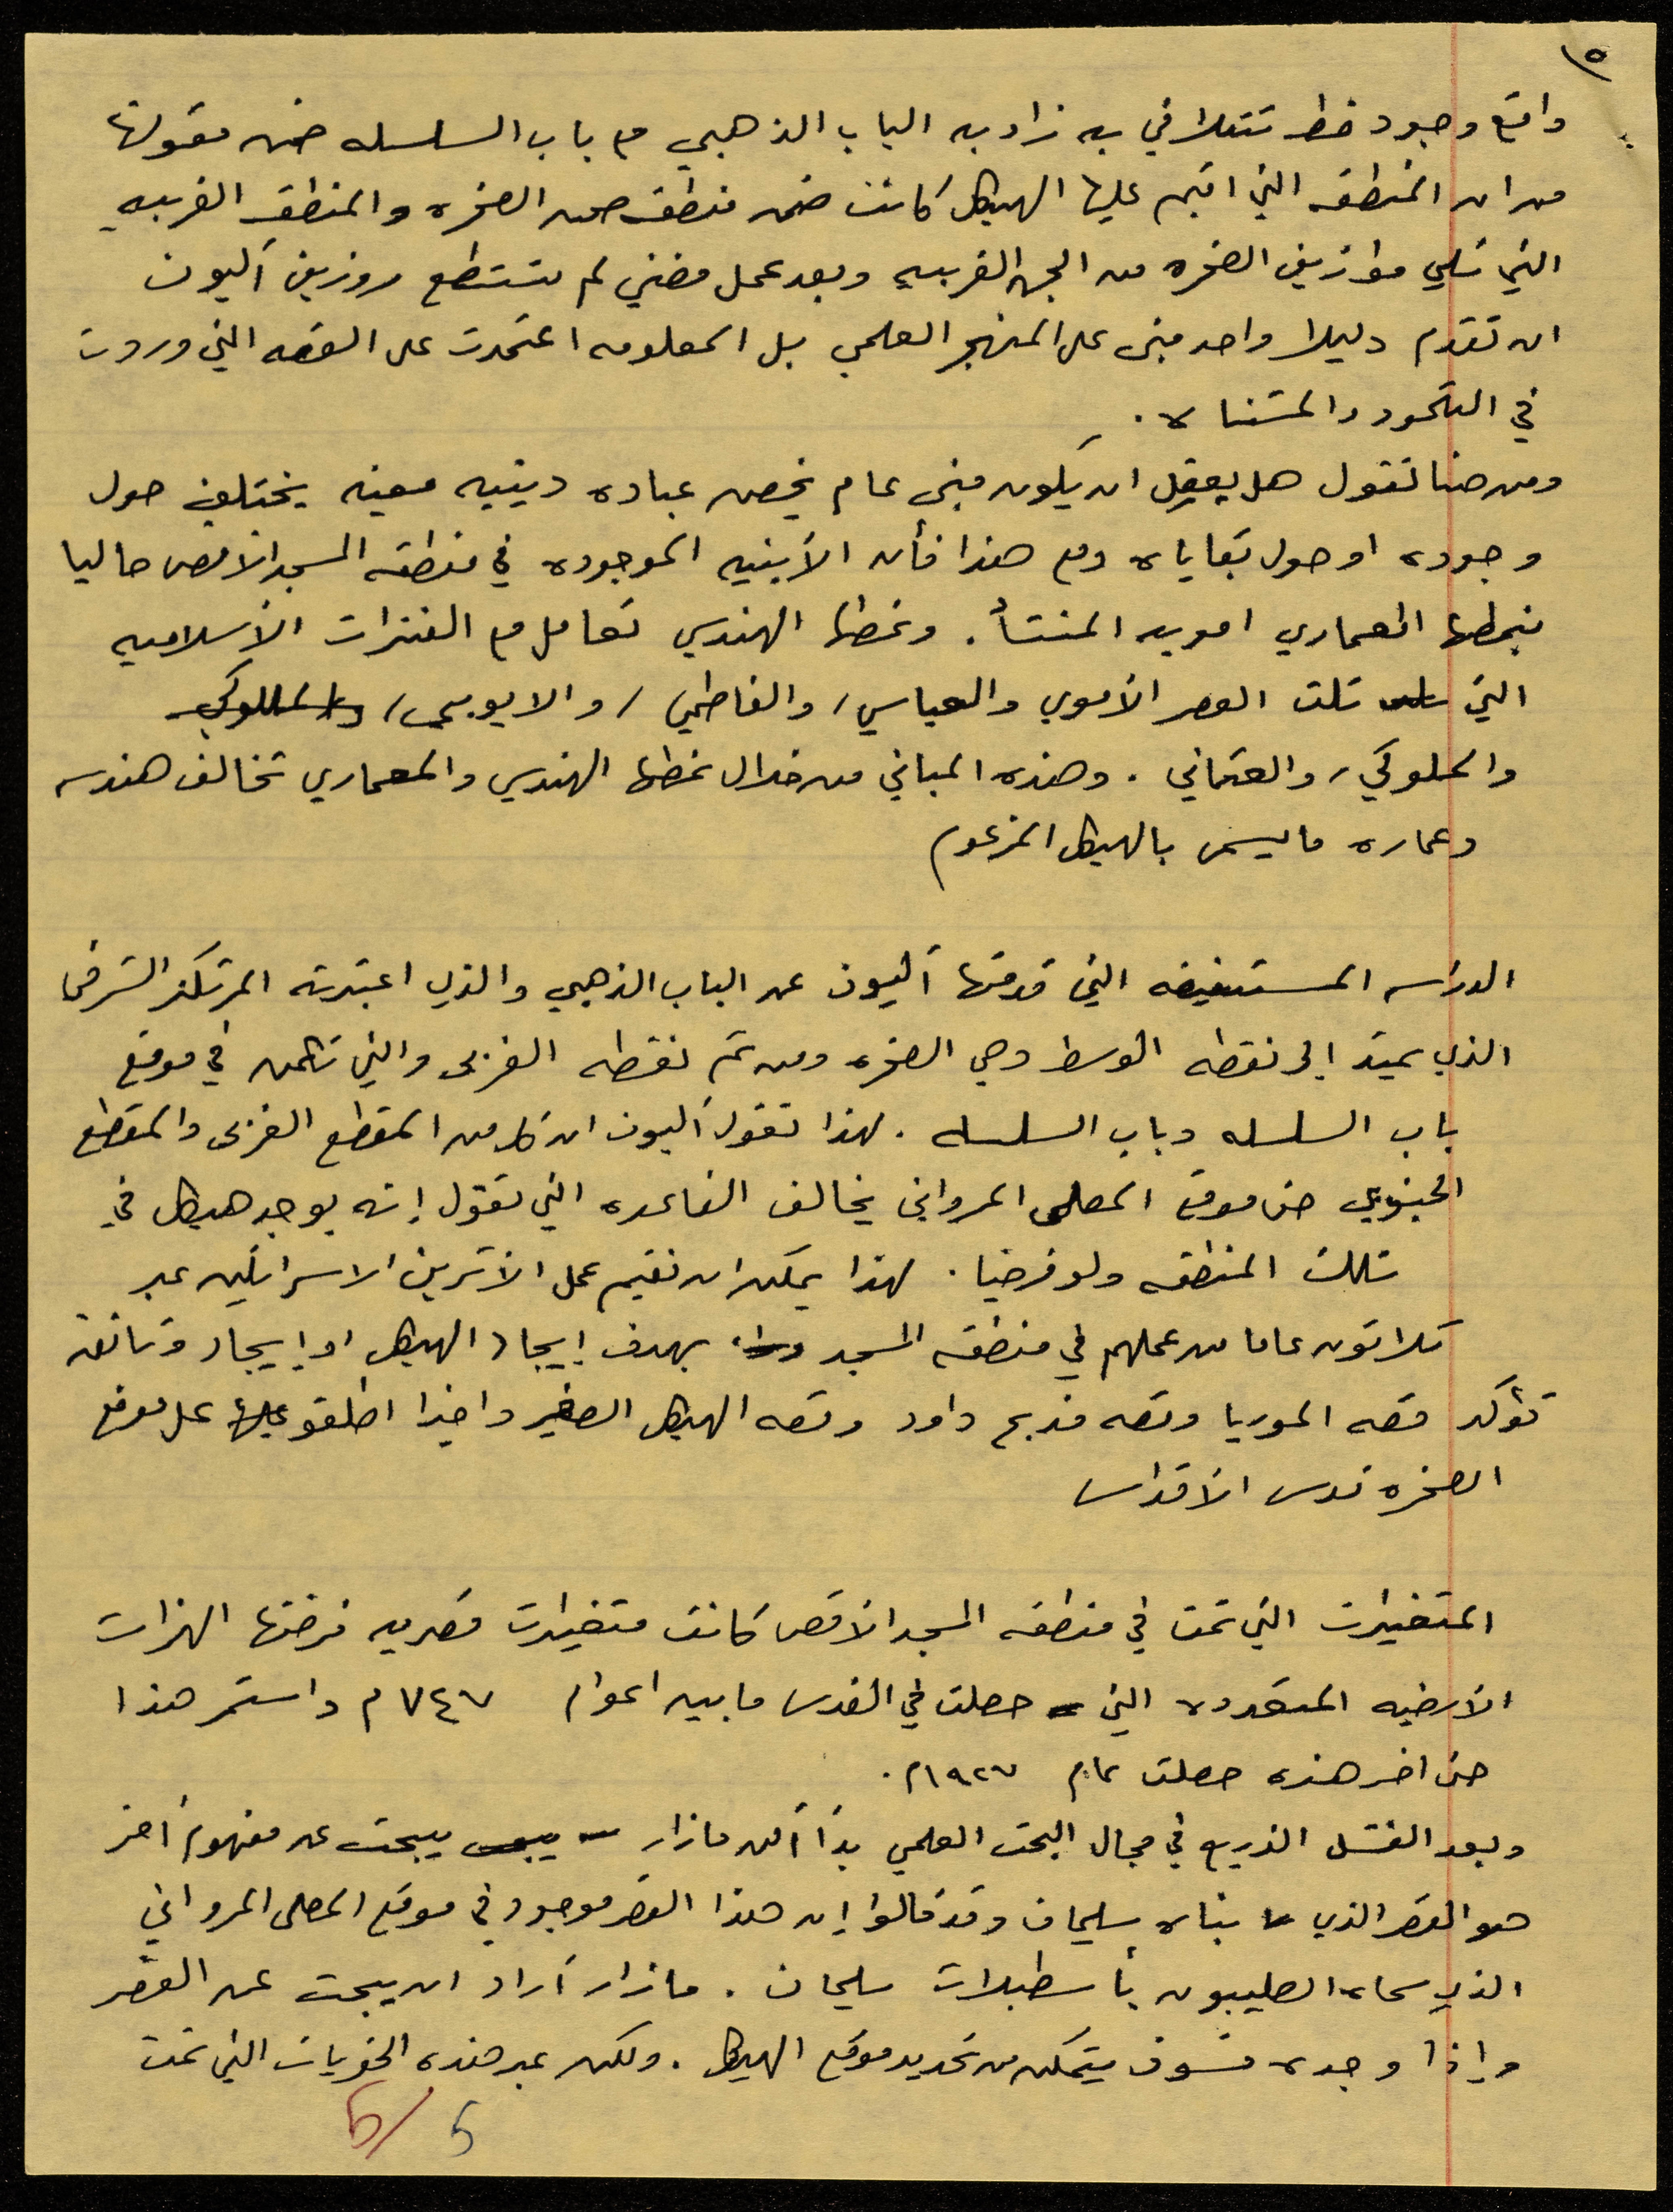 ٥
واقع وجود خط تتعلا في به زاد به الباب الذهبي مع باب السلسله ضمن مقولتها
من ان المنطقه التي اقيم عليها الهيكل كانت ضمن منطقه صحن الصخره والمنطقه الغربيه
التي تلي موازين الصخره من الجهه الغربيه وبعد عمل مضني لم تستطع روزين آليون
ان تقدم دليلا واحد مبني على المنهج العلمي بل المعلومه اعتمدت على القصه التي وردت
في التلمود والمشناه .
ومن هنا نقول هل يعقل ان يكون مبنى عام يخص عباده دينيه معينه يختلف حول
وجوده او حول بقاياه ومع هذا فأن الأبنيه الموجوده في منطقه المسجد الاقصى حاليا
بنمطها المعماري امويه المنشأ . ونمطها الهندسي تعامل مع الفترات الأسلاميه
التي تلت العصر الأموي والعباسي / والفاطمي / والايوبي / والمملوكي
والمملوكي / والعثماني . وهذه المباني من خلال نمطها الهندسي والمعماري تخالف هندسه
وعماره ما يسمى بالهيكل المزعوم
الدراسه المستفيضه التي قدمتها آليون عن الباب الذهبي والذي اعتبرته المرتكز الشرقي
الذي يمتد إلى نقطه الوسط وهي الصخره ومن ثم نقطه الغربي والتي تكمن في موقع
باب السلسله وباب السلسله . لهذا تقول آليون ان كل من المقطع الغربي والمقطع
الجنوبي حتى موقع المصلى المرواني يخالف القاعده التي تقول إنه يوجد هيكل في
تلك المنطقه ولو فرضيا . لهذا يمكن ان نقيم عمل الأثريين الاسرائيلين عبر
ثلاثون عاما من عملهم في منطقه المسجد بهدف إيجاد الهيكل او إيجاد وثائق
تؤكد قصه الموريا وقصه مذبح داود وقصه الهيكل الصغير واخيرا اطلقو عليها على موقع
الصخره قدس الأقداس
المتغيرات التي تمت في منطقه المسجد الاقصى كانت متغيرات قصريه فرضتها الهزات
الأرضيه المتعدده التي حصلت في القدس ما بين اعوام ٧٤٧م واستمر هذا
حتى اخر هذه حصلت عام ١٩٢٧م.
وبعد الفشل الذريع في مجال البحث العلمي بدأ آلن مازار يبحث عن مفهوم أخر
هو القصر الذي بناه سليمان وقد قالوا إن هذا القصر موجود في موقع المصلى المرواني
الذي سماه الصليبون بأسطبلات سليمان . مازار آراد ان يبحث عن القصر
وإذا وجده فسوف يتمكن من تحديد موقع الهيكل . ولكن عبر هذه الحفريات التي تمت
5/5